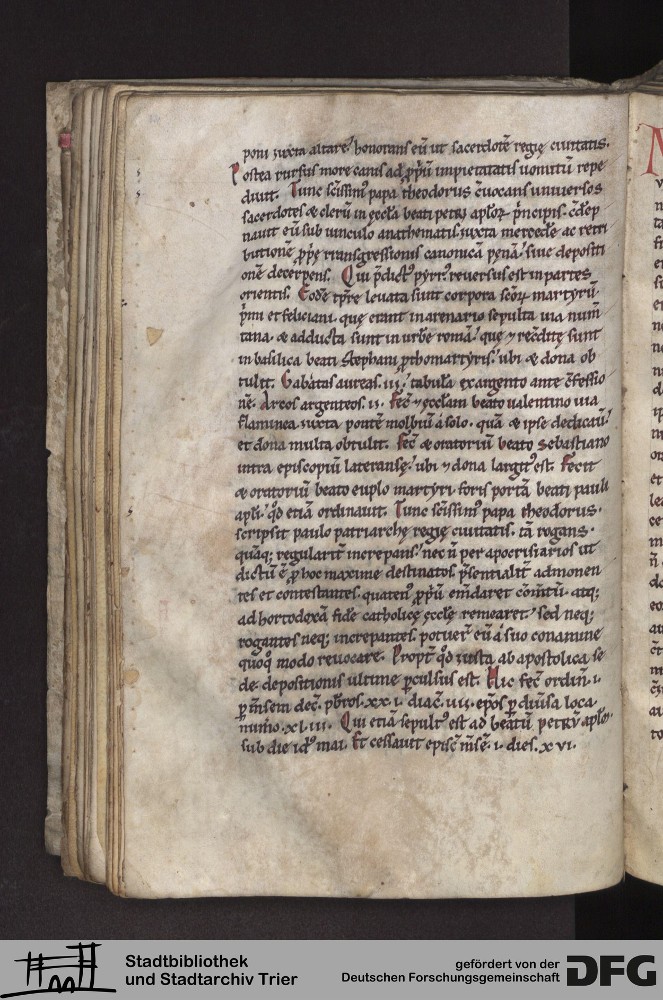 poni iuxta altare. honorans eū ut sacerdotē regię ciuitatis.
Postea rursus more canis ad ꝓpriū impietatatis uomitū repe
diuit. Tunc sc̄issim᷒ papa theodorus c̄uocans uniuersos
sacerdotes & clerū in ęccła beati petri aplor̄ p̄ncipis. c̄dēp
nauit eū sub uinculo anathematis. iuxta mercedē ac retri
butionē ꝓprię transgressionis canonicā penā. siue depositi
onē decerpens. Qui p̄dict᷒ pyrr᷒ reuersus est in partes
orientis. Eodē tp̄re leuata sunt corpora sc̄or̄ martyrū
p̄mi et feliciani. quę erant in arenario sepulta uia num̄
tana. & adducta sunt in urbē romā. quę ⁊ rec̄ditę sunt
in basilica beati stephani ꝓthomartyris. ubi & dona ob
tulit. Gabatas aureas .iii. tabulā ex argento ante c̄fessio
nē. Arcos argenteos .ii. Fec̄ ⁊ ęccłam beato ualentino uia
flaminea iuxta pontē molbiū a solo. quā & ipse dedicauit̄
et dona multa obtulit. Fec̄ & oratoriū beato sebastiano
intra episcopiū lateransę. ubi ⁊ dona largit᷒ est. Fecit
& oratoriū beato euplo martyri. foris portā beati pauli
apłi. qđ etiā ordinauit. Tunc sc̄issim᷒ papa theodorus.
scripsit paulo patriarchę regię ciuitatis. tā rogans.
quāq; regularit̄ increpans. nec n̄ per apocrisiarios ut
dictū ē ꝓ hoc maxime destinatos. p̄sentialit̄ admonen
tes et contestantes. quaten᷒ ꝓpriū em̄daret com̄tū. atq;
ad hortodoxā fidē catholicę ęccłę remearet. sed neq;
rogantes neq; increpantes. potuer̄ eū a suo conamine
quoq̊ modo reuocare. Propt̄ qđ iusta ab apostolica se
de. depositionis ultime ꝑculsus est. Hic fec̄ ordin̄ .i.
ꝑ m̄sem dec̄. pb̄ros .xx.i. diac̄ .iiii. ep̄os ꝑ diuūsa loca
num̄o .xl.iii. Qui etiā sepult᷒ est ad beatū petrū aplōr̄.
sub die id᷒ mai. Et cessauit episc̄ m̄sē .i. dies .xvi.
Stadtbibliothek
und Stadtarchiv Trier
gefördert von der
Deutschen Forschungsgemeinschaft
DFG